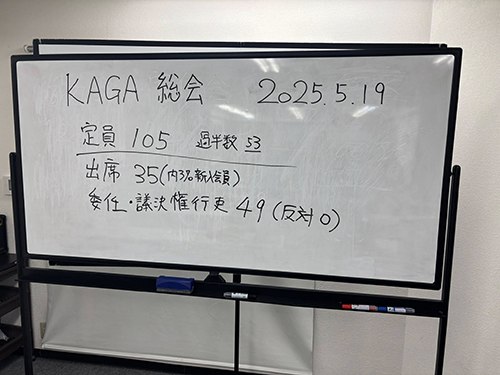 KAGA 総会 2025.5.19
定員 105 過半数 53
出席 35(内3名新入会員)
委任・議決権行吏 49 (反対0)